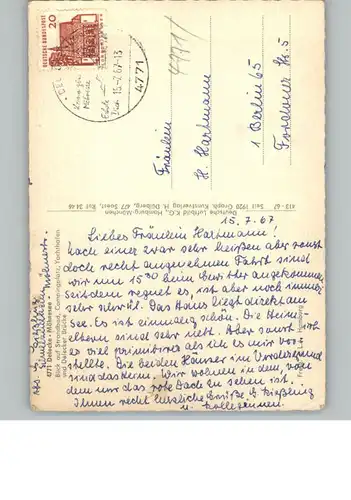 DEUTSCHE BUNDESPOST
20
15.-7.67-13
4771
4771
Fräulein
H. Hartmann
1 Berlin 65
Fordoner Str. 5
413-67 Seit 1920 Graph. Kunstverlag H. Dolberg, 477 Soest, Ruf 34 46
Deutsche Luftbild K.G., Hamburg-München
4771 Delecke-Möhnesee
Blick auf Strandbad, Campingplatz, Yachthafen
und Delecker Brücke
15.7.67
Liebes Fräulein Hartmann!
Nach einer zwar sehr heißen aber sonst
doch recht angenehmen Fahrt sind
wir um 15³⁰ beim Gewitter angekommen.
Seitdem regnet es, ist aber noch immer
sehr schwül. Das Haus liegt direkt am
See. Es ist einmalig schön. Die
eltern sind sehr nett. Aber sonst ist
es viel primitiver als ich es mir vor-
stellte. Die beiden Häuser im Vordergrund
sind das Heim. Wir wohnen in dem, von
dem nur das rote Dach zu sehen ist.
Ihnen recht herzliche Grüße G. Kießling
u. Kolleginnen.